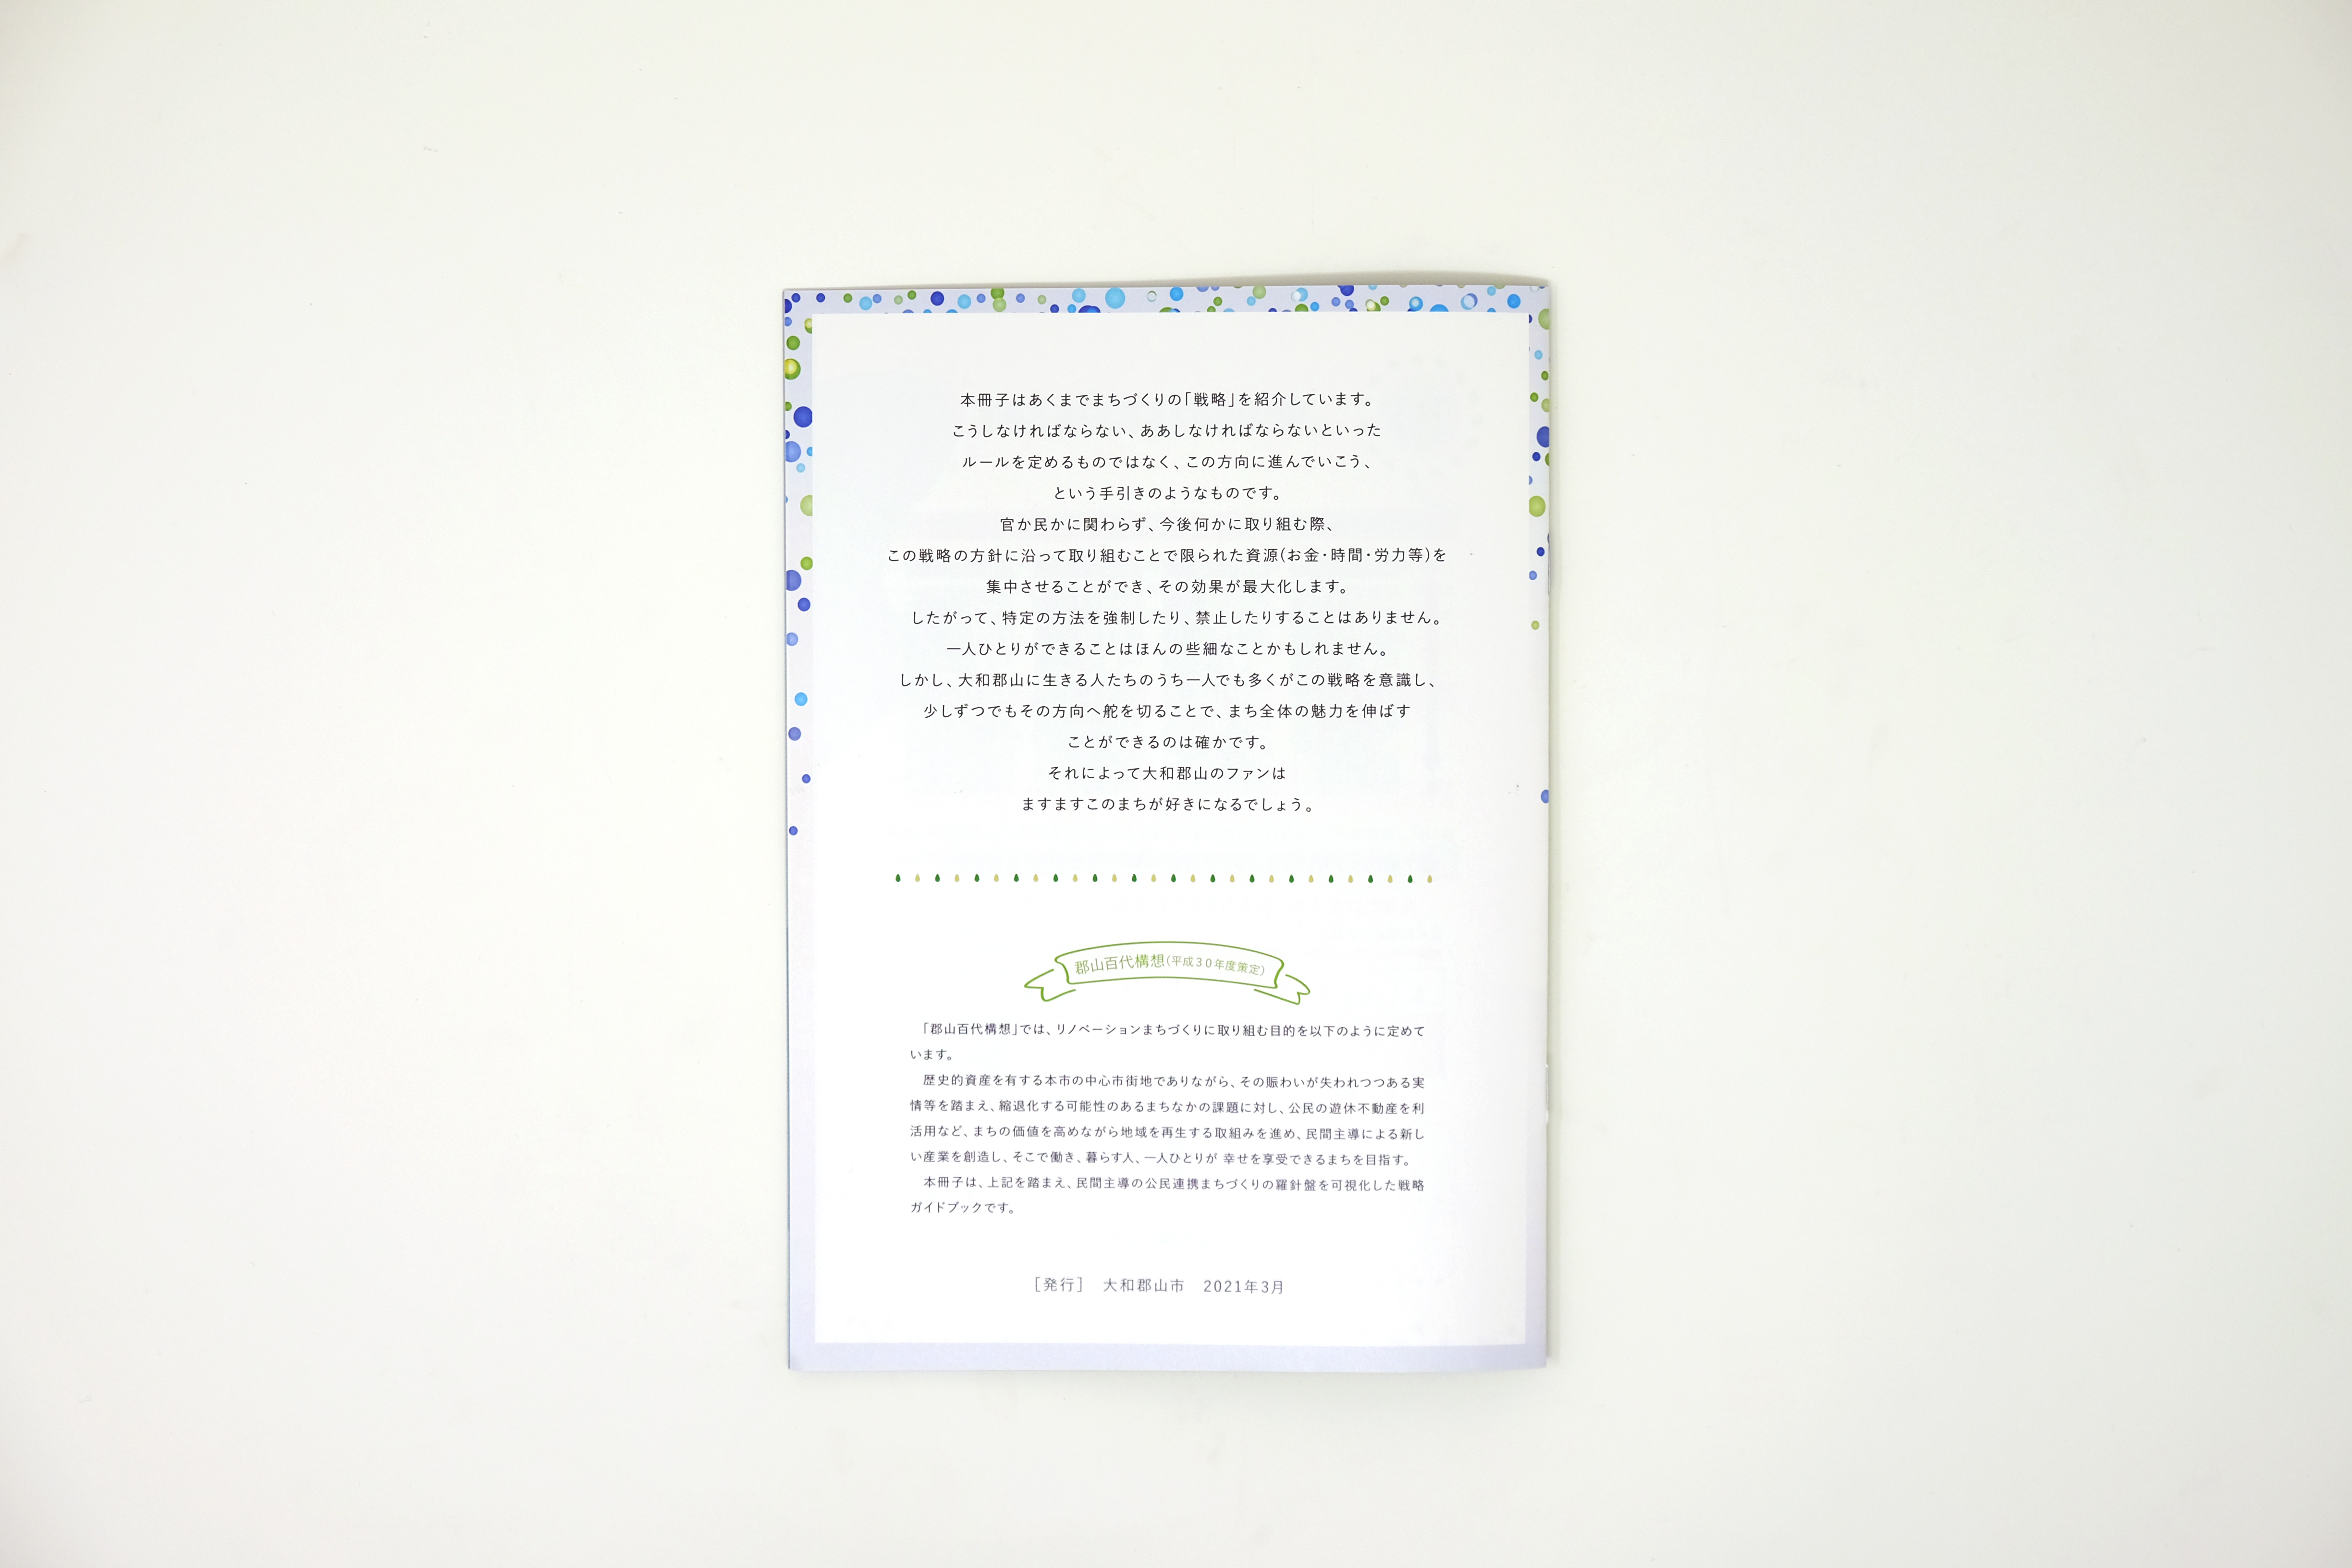 本冊子はあくまでまちづくりの「戦略」を紹介しています。
こうしなければならない、ああしなければならないといった
ルールを定めるものではなく、この方向に進んでいこう、
という手引きのようなものです。
官か民かに関わらず、今後何かに取り組む際、
この戦略の方針に沿って取り組むことで限られた資源(お金・時間・労力等)を
集中させることができ、その効果が最大化します。
したがって、特定の方法を強制したり、禁止したりすることはありません。
一人ひとりができることはほんの些細なことかもしれません。
しかし、大和郡山に生きる人たちのうち一人でも多くがこの戦略を意識し、
少しずつでもその方向へ舵を切ることで、まち全体の魅力を伸ばす
ことができるのは確かです。
それによって大和郡山のファンは
ますますこのまちが好きになるでしょう。
郡山百代構想(平成30年度策定)
「郡山百代構想」では、リノベーションまちづくりに取り組む目的を以下のように定めて
います。
歴史的資産を有する本市の中心市街地でありながら、その賑わいが失われつつある実
情等を踏まえ、縮退化する可能性のあるまちなかの課題に対し、公民の遊休不動産を利
活用など、まちの価値を高めながら地域を再生する取組みを進め、民間主導による新し
い産業を創造し、そこで働き、暮らす人、一人ひとりが 幸せを享受できるまちを目指す。
本冊子は、上記を踏まえ、民間主導の公民連携まちづくりの羅針盤を可視化した戦略
ガイドブックです。
[発行] 大和郡山市 2021年3月